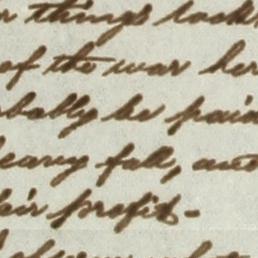 things look
of the war her
bably be pain
heavy fall, and
eir profit-